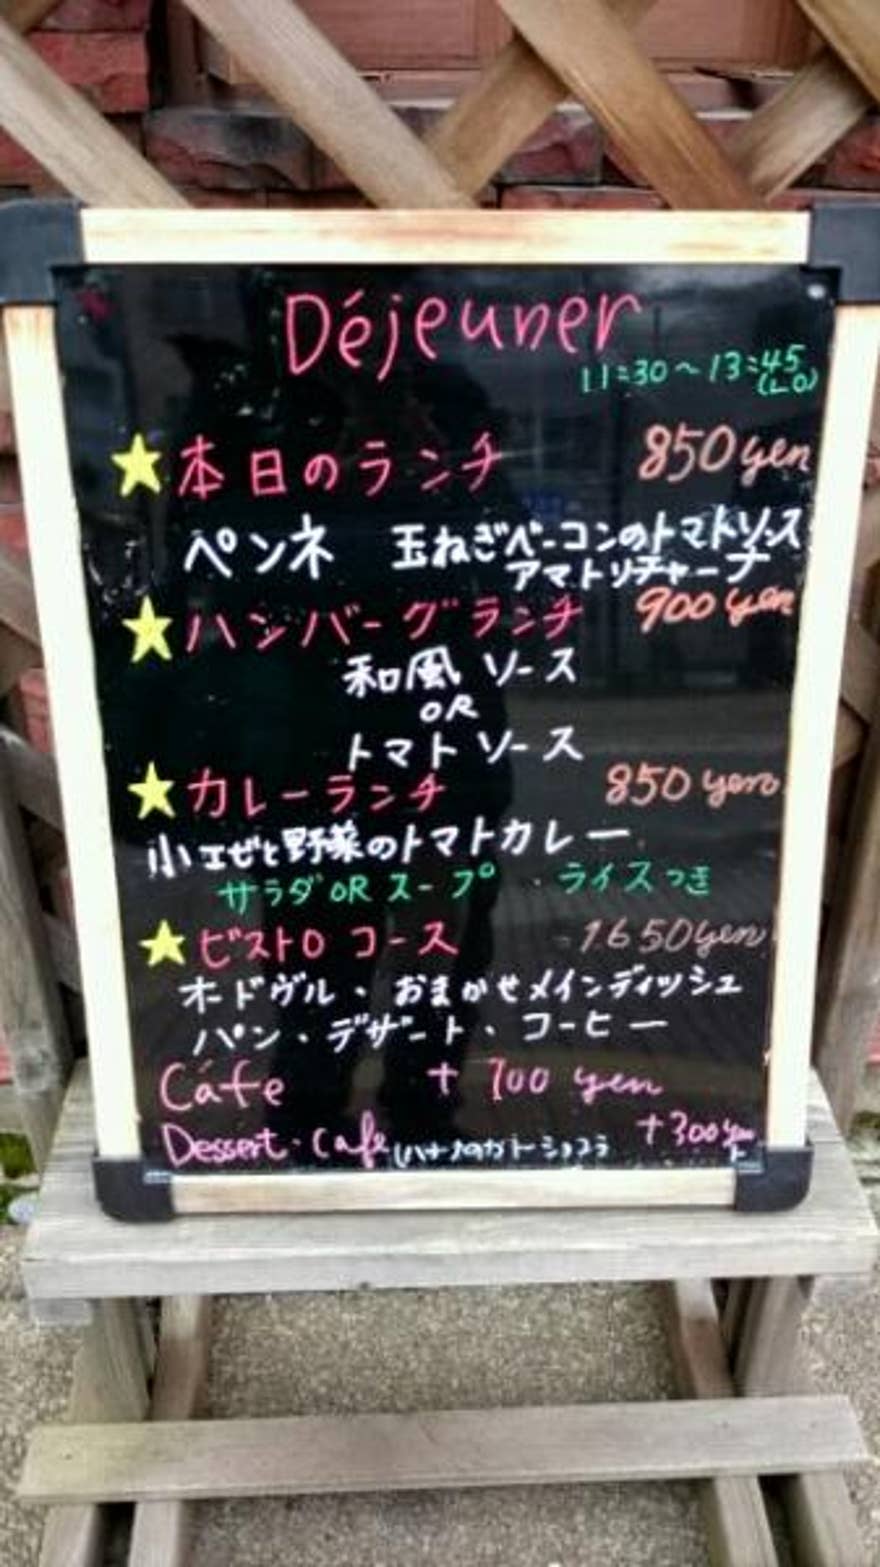 Déjeuner
11:30~13:45
(LO)
★本日のランチ 850yen
ペンネ 玉ねぎベーコンのトマトソース
アマトリチャーナ
★ハンバーグランチ 900yen
和風 ソース
OR
トマト ソース
★カレーランチ 850yen
小エビと野菜のトマトカレー
サラダ OR スープ ・ ライスつき
★ビストロ コース 1650yen
オードヴル・おまかせメインディッシュ
パン・デザート・コーヒー
Cáfe + 100 yen
Dessert・Cafe バナナのガトーショコラ +300yen